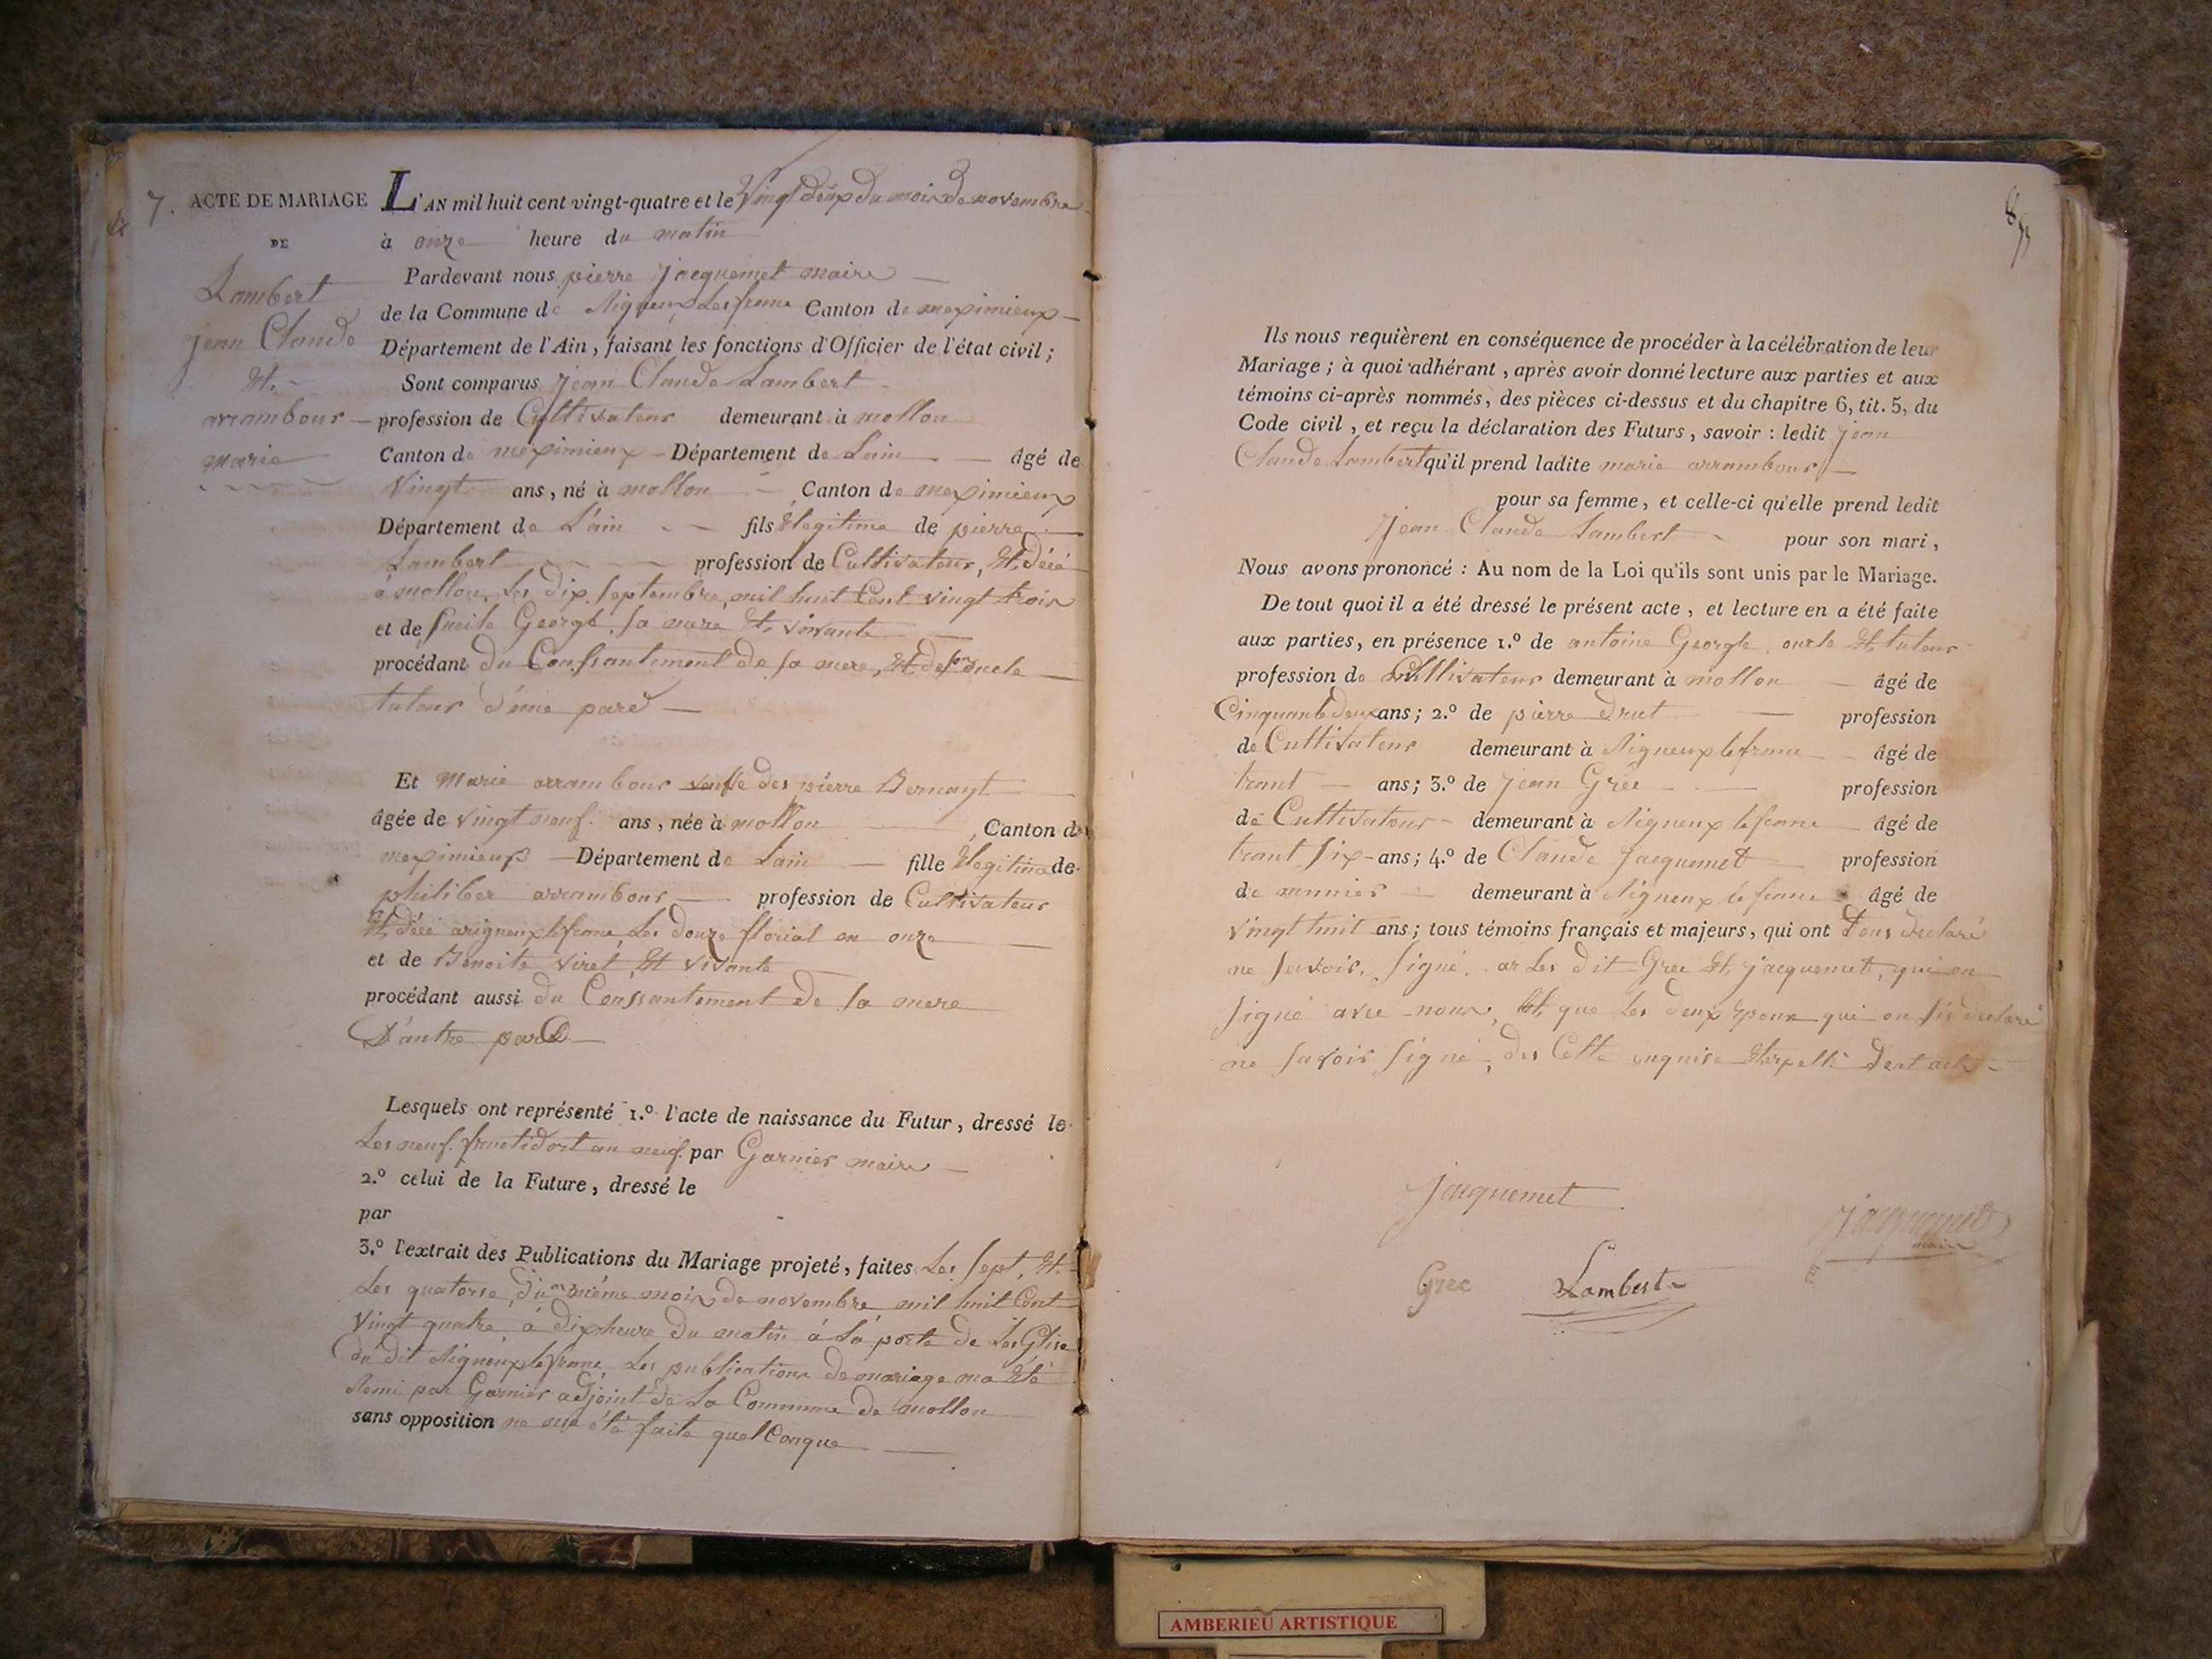 7. ACTE DE MARIAGE
DE
Lambert
jean Claude
Et
arrambour
marie
L'AN mil huit cent vingt-quatre et le Vingt deux du mois de novembre
à onze heure du matin
Pardevant nous pierre jacquemet maire
de la Commune de Rigneux lesfranc Canton de meximieux
Département de l'Ain, faisant les fonctions d'Officier de l'état civil;
Sont comparus jean Claude Lambert
profession de Cultivateur demeurant à mollon
Canton de meximieux Département de Lain âgé de
Vingt ans, né à mollon Canton de meximieux
Département de L'ain fils légitime de pierre
Lambert profession de Cultivateur, Et décé
à mollon, les dix septembre, mil huit Cent vingt trois
et de George, sa mere Et vivante
procédant du Conssantement de sa mere, Et de son oncle
tuteur d'une pard
Et Marie arrambour veuffe des pierre Bernayt
âgée de vingt neuf ans, née à mollon Canton de
meximieux Département de Lain fille légitime de
philiber arrambour profession de Cultivateur
Et décé arigneux lefranc, les douze florial an onze
et de Benoite viret, Et vivante
procédant aussi du Conssantement de sa mere
D'autre pard
Lesquels ont représenté 1.º l'acte de naissance du Futur, dressé le
Les neuf fructidort an neuf par Garnier maire
2.º celui de la Future, dressé le
par
3.º l'extrait des Publications du Mariage projeté, faites Les sept, Et
Les quatorse, du même mois de novembre mil huit Cent
Vingt quatre, à dix heure du matin à la porte de Les Glise
du dit Rigneux lefranc, Les publications de mariage ma Eté
Remi par Garnier adjoint de La Commune de mollon
sans opposition ne me été faite quelConque
Ils nous requièrent en conséquence de procéder à la célébration de leur
Mariage; à quoi adhérant, après avoir donné lecture aux parties et aux
témoins ci-après nommés, des pièces ci-dessus et du chapitre 6, tit. 5, du
Code civil, et reçu la déclaration des Futurs, savoir: ledit jean
Claude Lambert qu'il prend ladite marie arrambour
pour sa femme, et celle-ci qu'elle prend ledit
Jean Claude Lambert pour son mari,
Nous avons prononcé: Au nom de la Loi qu'ils sont unis par le Mariage.
De tout quoi il a été dressé le présent acte, et lecture en a été faite
aux parties, en présence 1.º de antoine George oncle Et tuteur
profession de Cultivateur demeurant à mollon âgé de
Cinquante deux ans; 2.º de pierre Drut profession
de Cultivateur demeurant à Rigneux lefranc âgé de
trant ans; 3.º de jean Gree profession
de Cultivateur demeurant à Rigneux lefranc âgé de
trant six ans; 4.º de Claude Jacquemet profession
de munier demeurant à Rigneux lefranc âgé de
vingt huit ans; tous témoins français et majeurs, qui ont tous declaré
ne savoir signé Les dit Gree Et jacquemet, qui on
signé avec nous, Et que Les deux Epoux qui on declaré
ne savoir signé, des Cette enquise
Jacquemet
Jacquemet
maire
Gree Lambert
AMBERIEU ARTISTIQUE